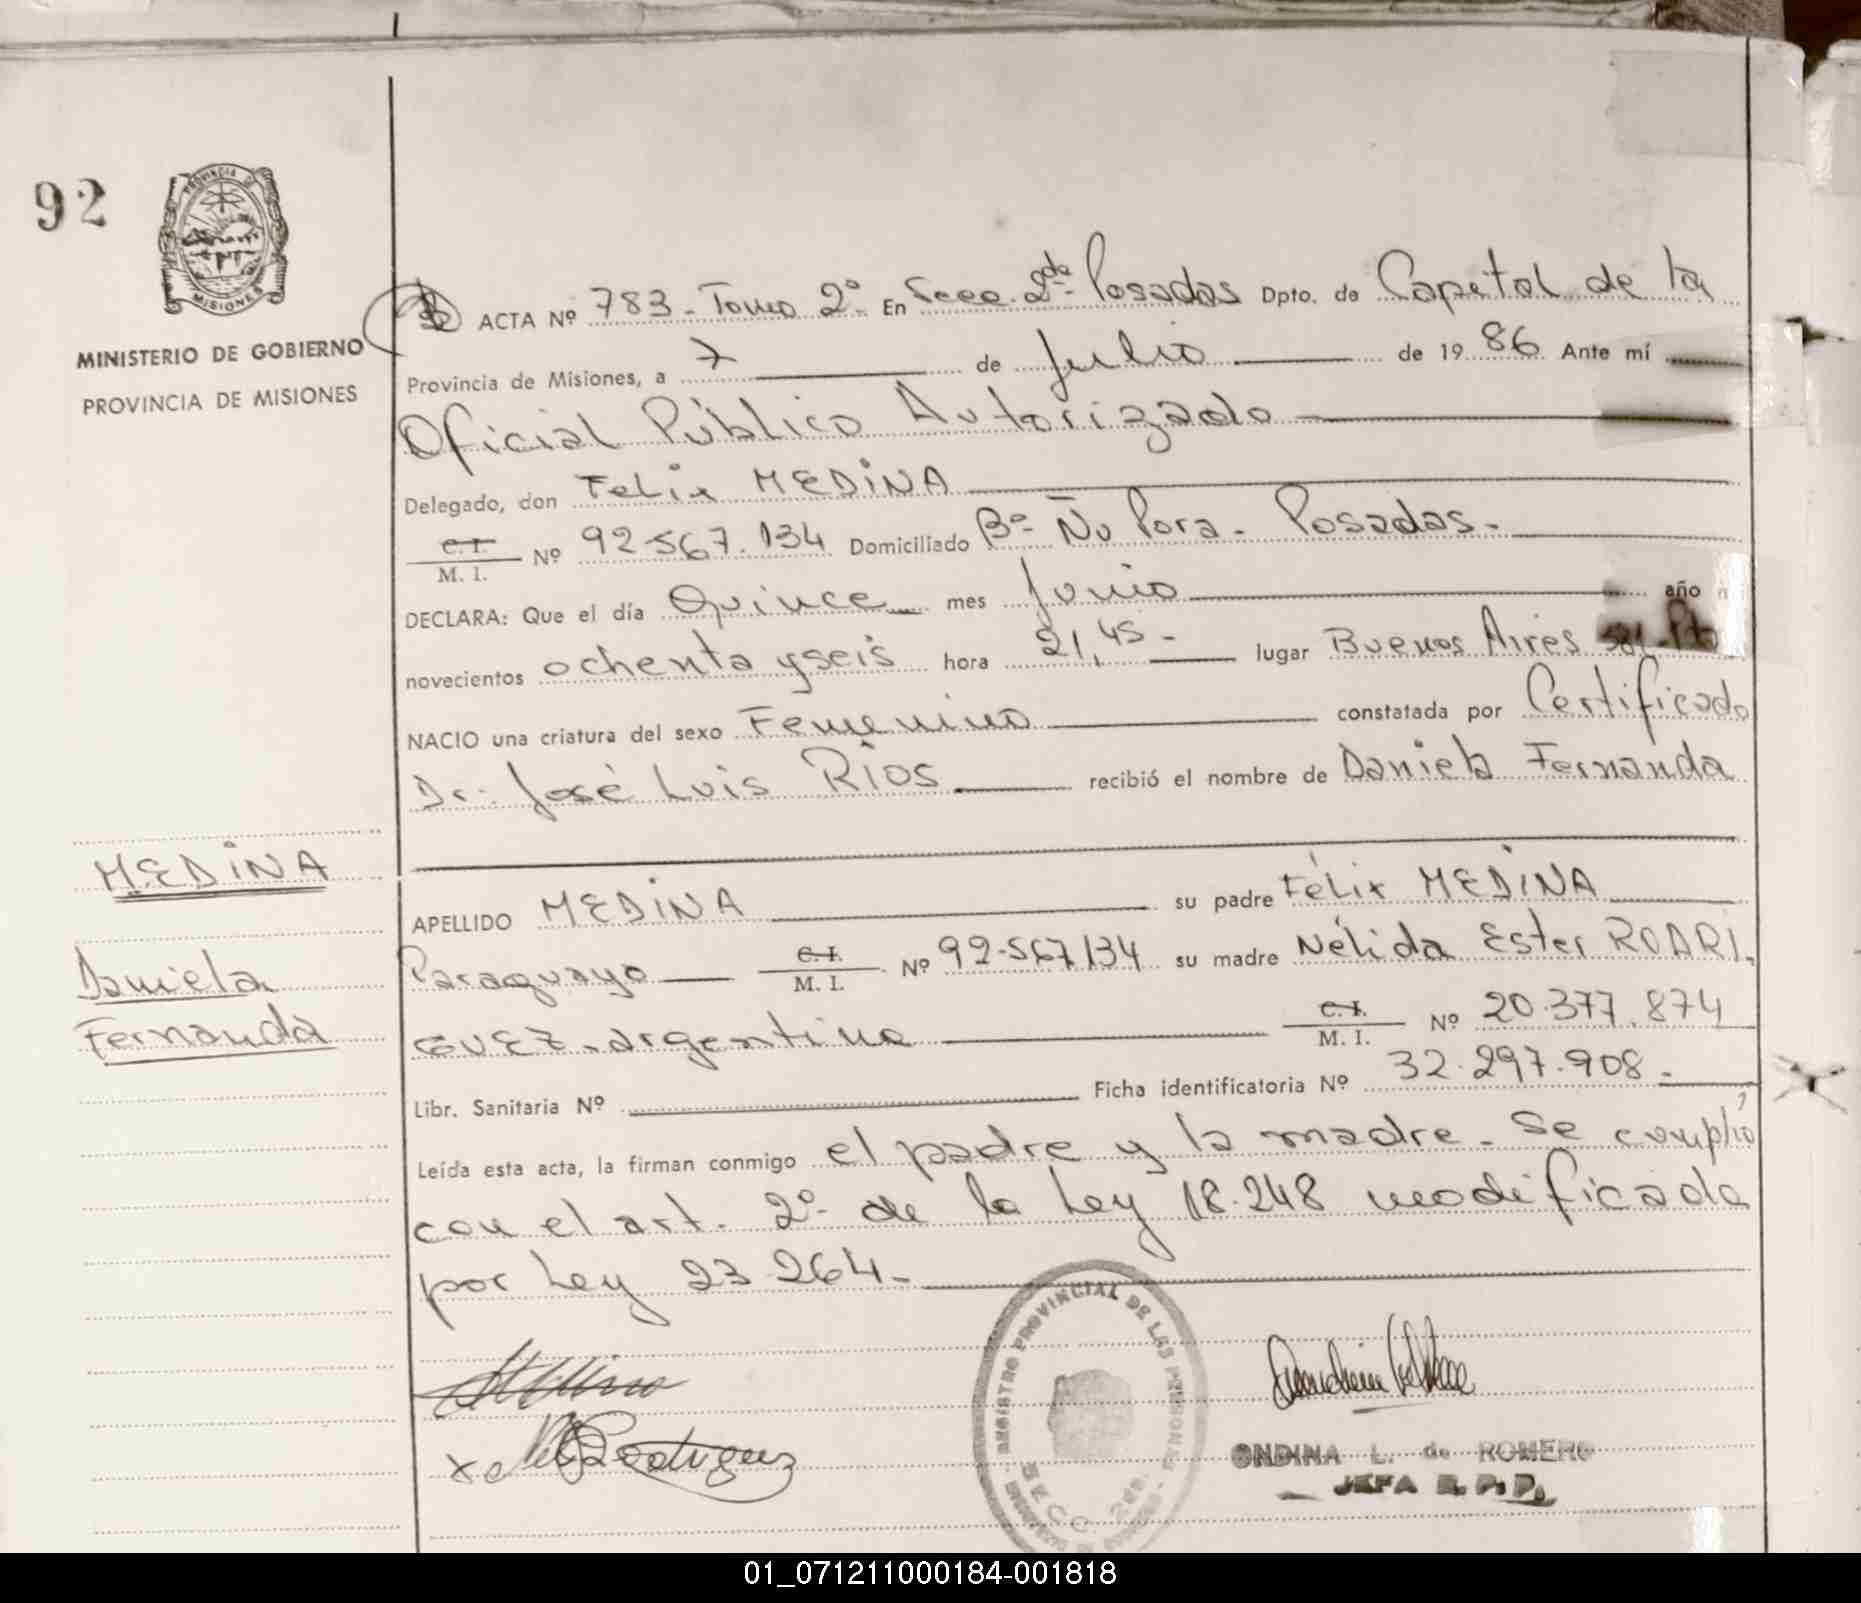 92
PROVINCIA DE
MISIONES
MINISTERIO DE GOBIERNO
PROVINCIA DE MISIONES
ACTA Nº 783 - Tomo 2º. En Secc. 2da Posadas Dpto. de Capital de la
Provincia de Misiones, a 7 de Julio de 1986 Ante mí
Oficial Público Autorizado
Delegado, don Felix MEDINA
C.I. M. I. Nº 92.567.134 Domiciliado Bº Ñu Pora - Posadas.-
DECLARA: Que el día Quince mes Junio año
novecientos ochenta y seis hora 21,45 - lugar Buenos Aires
NACIO una criatura del sexo Femenino constatada por Certificado
Dr. José Luis RIOS recibió el nombre de Daniela Fernanda
MEDINA
Daniela
Fernanda
APELLIDO MEDINA su padre Félix MEDINA
Paraguayo C.I. M. I. Nº 92.567.134 su madre Nélida Ester RODRI-
GUEZ - argentina C.I. M. I. Nº 20.377.874
Libr. Sanitaria Nº Ficha identificatoria Nº 32.297.908.-
Leída esta acta, la firman conmigo el padre y la madre - Se cumplió
con el art. 2º de la Ley 18.248 modificada
por Ley 23.264.-
REGISTRO PROVINCIAL DE LAS PERSONAS
SECC. 2da.
ONDINA L. de ROMERO
JEFA R. P. P.
01_071211000184-001818